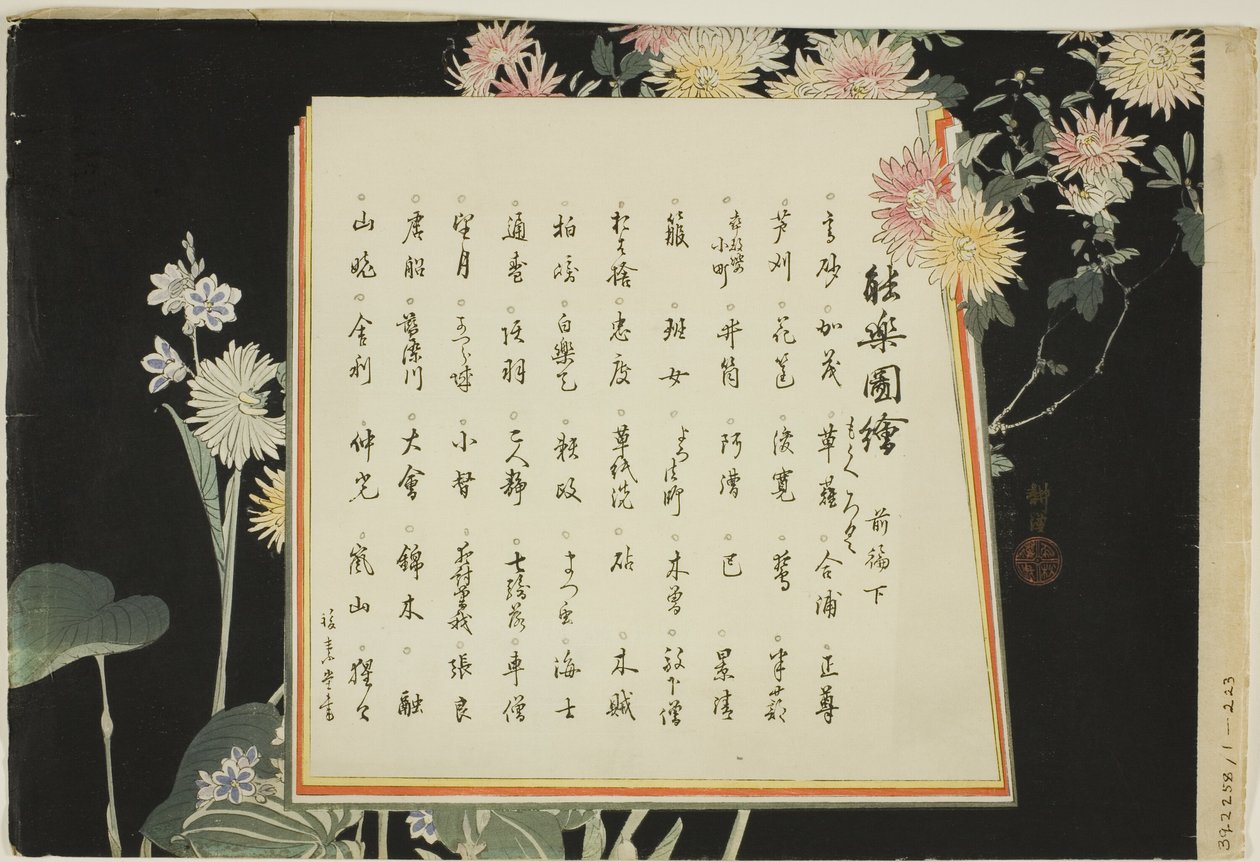 能樂圖繪 前編下
もくろく
高砂 加茂 草薙 合浦 正尊
芦刈 花筐 俊寛 鷺 半蔀
卒都婆小町 井筒 阿漕 巴 景清
籠 班女 よろ法師 木曽 放下僧
おば捨 忠度 草紙洗 砧 木賊
柏崎 白樂天 頼政 まつ風 海士
通盛 項羽 二人静 七騎落 車僧
望月 小督 夜討曽我 張良
唐船 藍染川 大會 錦木 融
山姥 舎利 仲光 嵐山 猩々
耕漁
39.2258/1-223